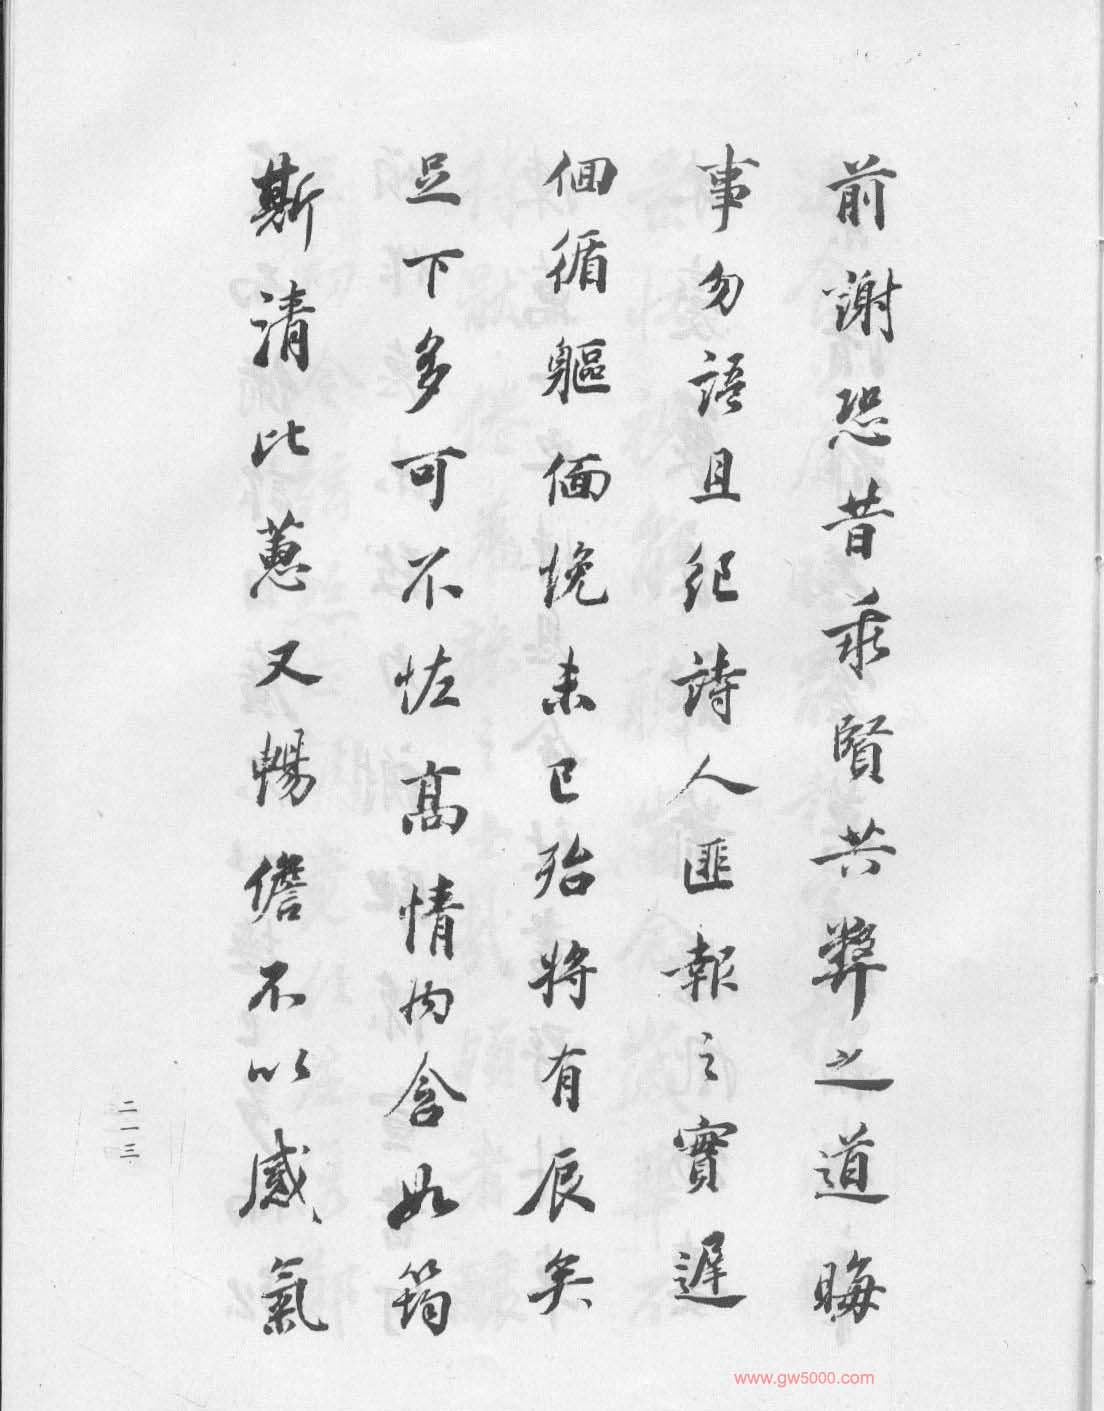 前謝恐昔乖賢共弊之道晦
事勿語且紀詩人匪報之實遲
佪循軀偭俛未已殆將有辰矣
足下多可不怪高情內含如筠
斯清比蕙又暢儋不以感氣
二一三
www.gw5000.com